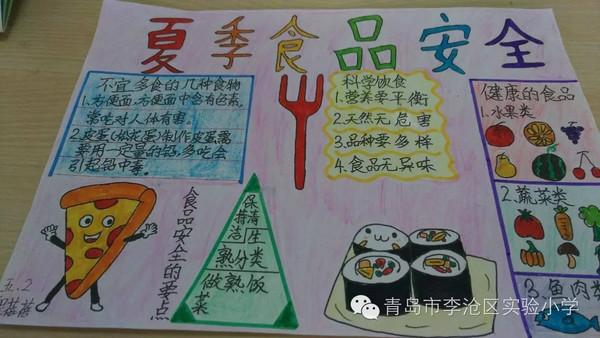 夏季食品安全
不宜多食的几种食物
1.方便面,方便面中含有色素,
常吃对人体有害。
2.皮蛋(松花蛋)制作皮蛋需
要用一定量的铅,多吃会
引起铅中毒。
科学饮食
1.营养要平衡
2.天然无危害
3.品种要多样
4.食品无异味
健康的食品
1.水果类
2.蔬菜类
3.鱼肉类
食品安全的要点
保持清洁
生熟分类
做熟饭菜
五.2
青岛市李沧区实验小学